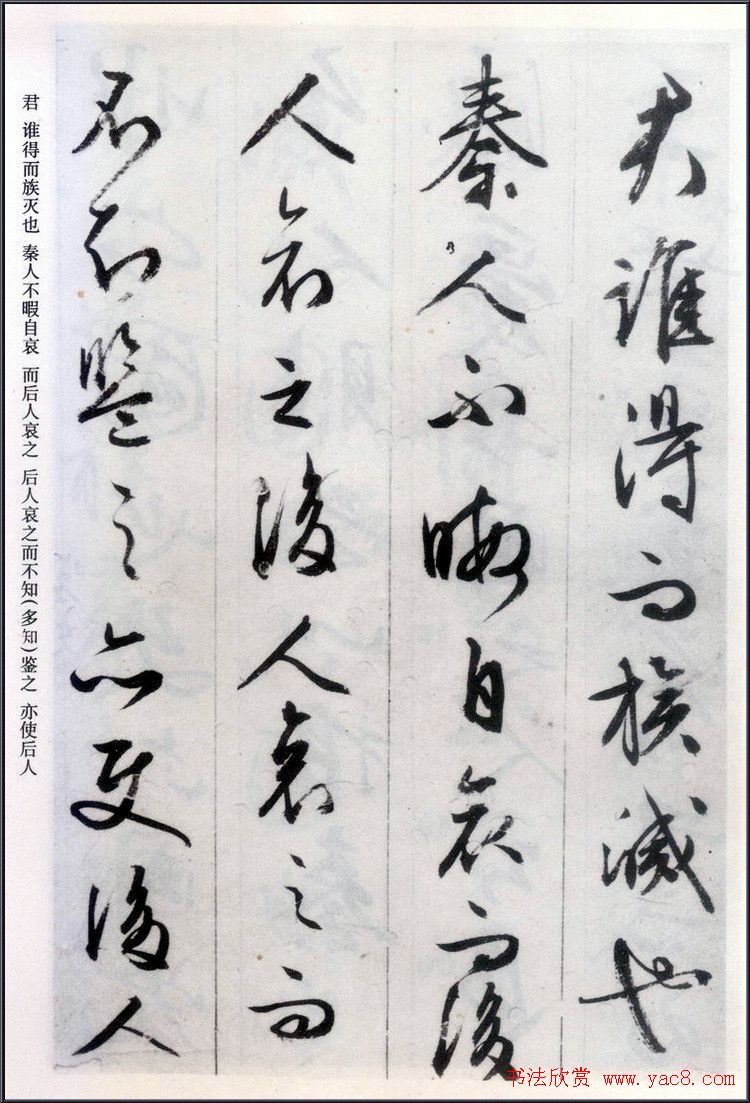 君誰得而族滅也
秦人不暇自哀而後
人哀之後人哀之而
不知鑒之亦使後人
君 谁得而族灭也 秦人不暇自哀 而后人哀之 后人哀之而不知(多知)鉴之 亦使后人
书法欣赏 www.yac8.com